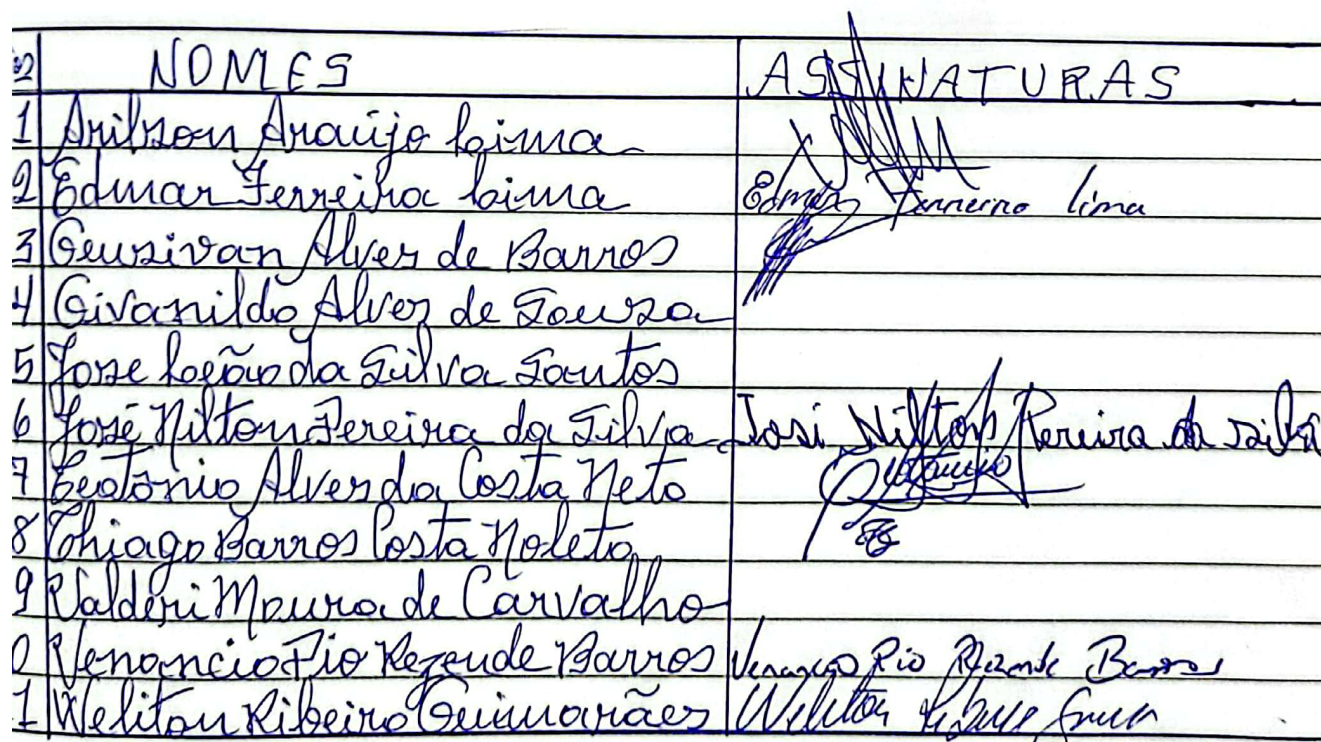 NOMES ASSINATURAS
1 Arilson Araújo Lima
2 Edmar Ferreira Lima Edmar Ferreira Lima
3 Geusivan Alves de Barros
4 Givanildo Alves de Sousa
5 Jose Leão da Silva Santos
6 José Nilton Pereira da Silva José Nilton Pereira da Silva
7 Teotônio Alves da Costa Neto
8 Thiago Barros Costa Noleto
9 Valderi Moura de Carvalho
0 Venancio Pio Rezende Barros Venancio Pio Rezende Barros
1 Weliton Ribeiro Guimarães Weliton Ribeiro